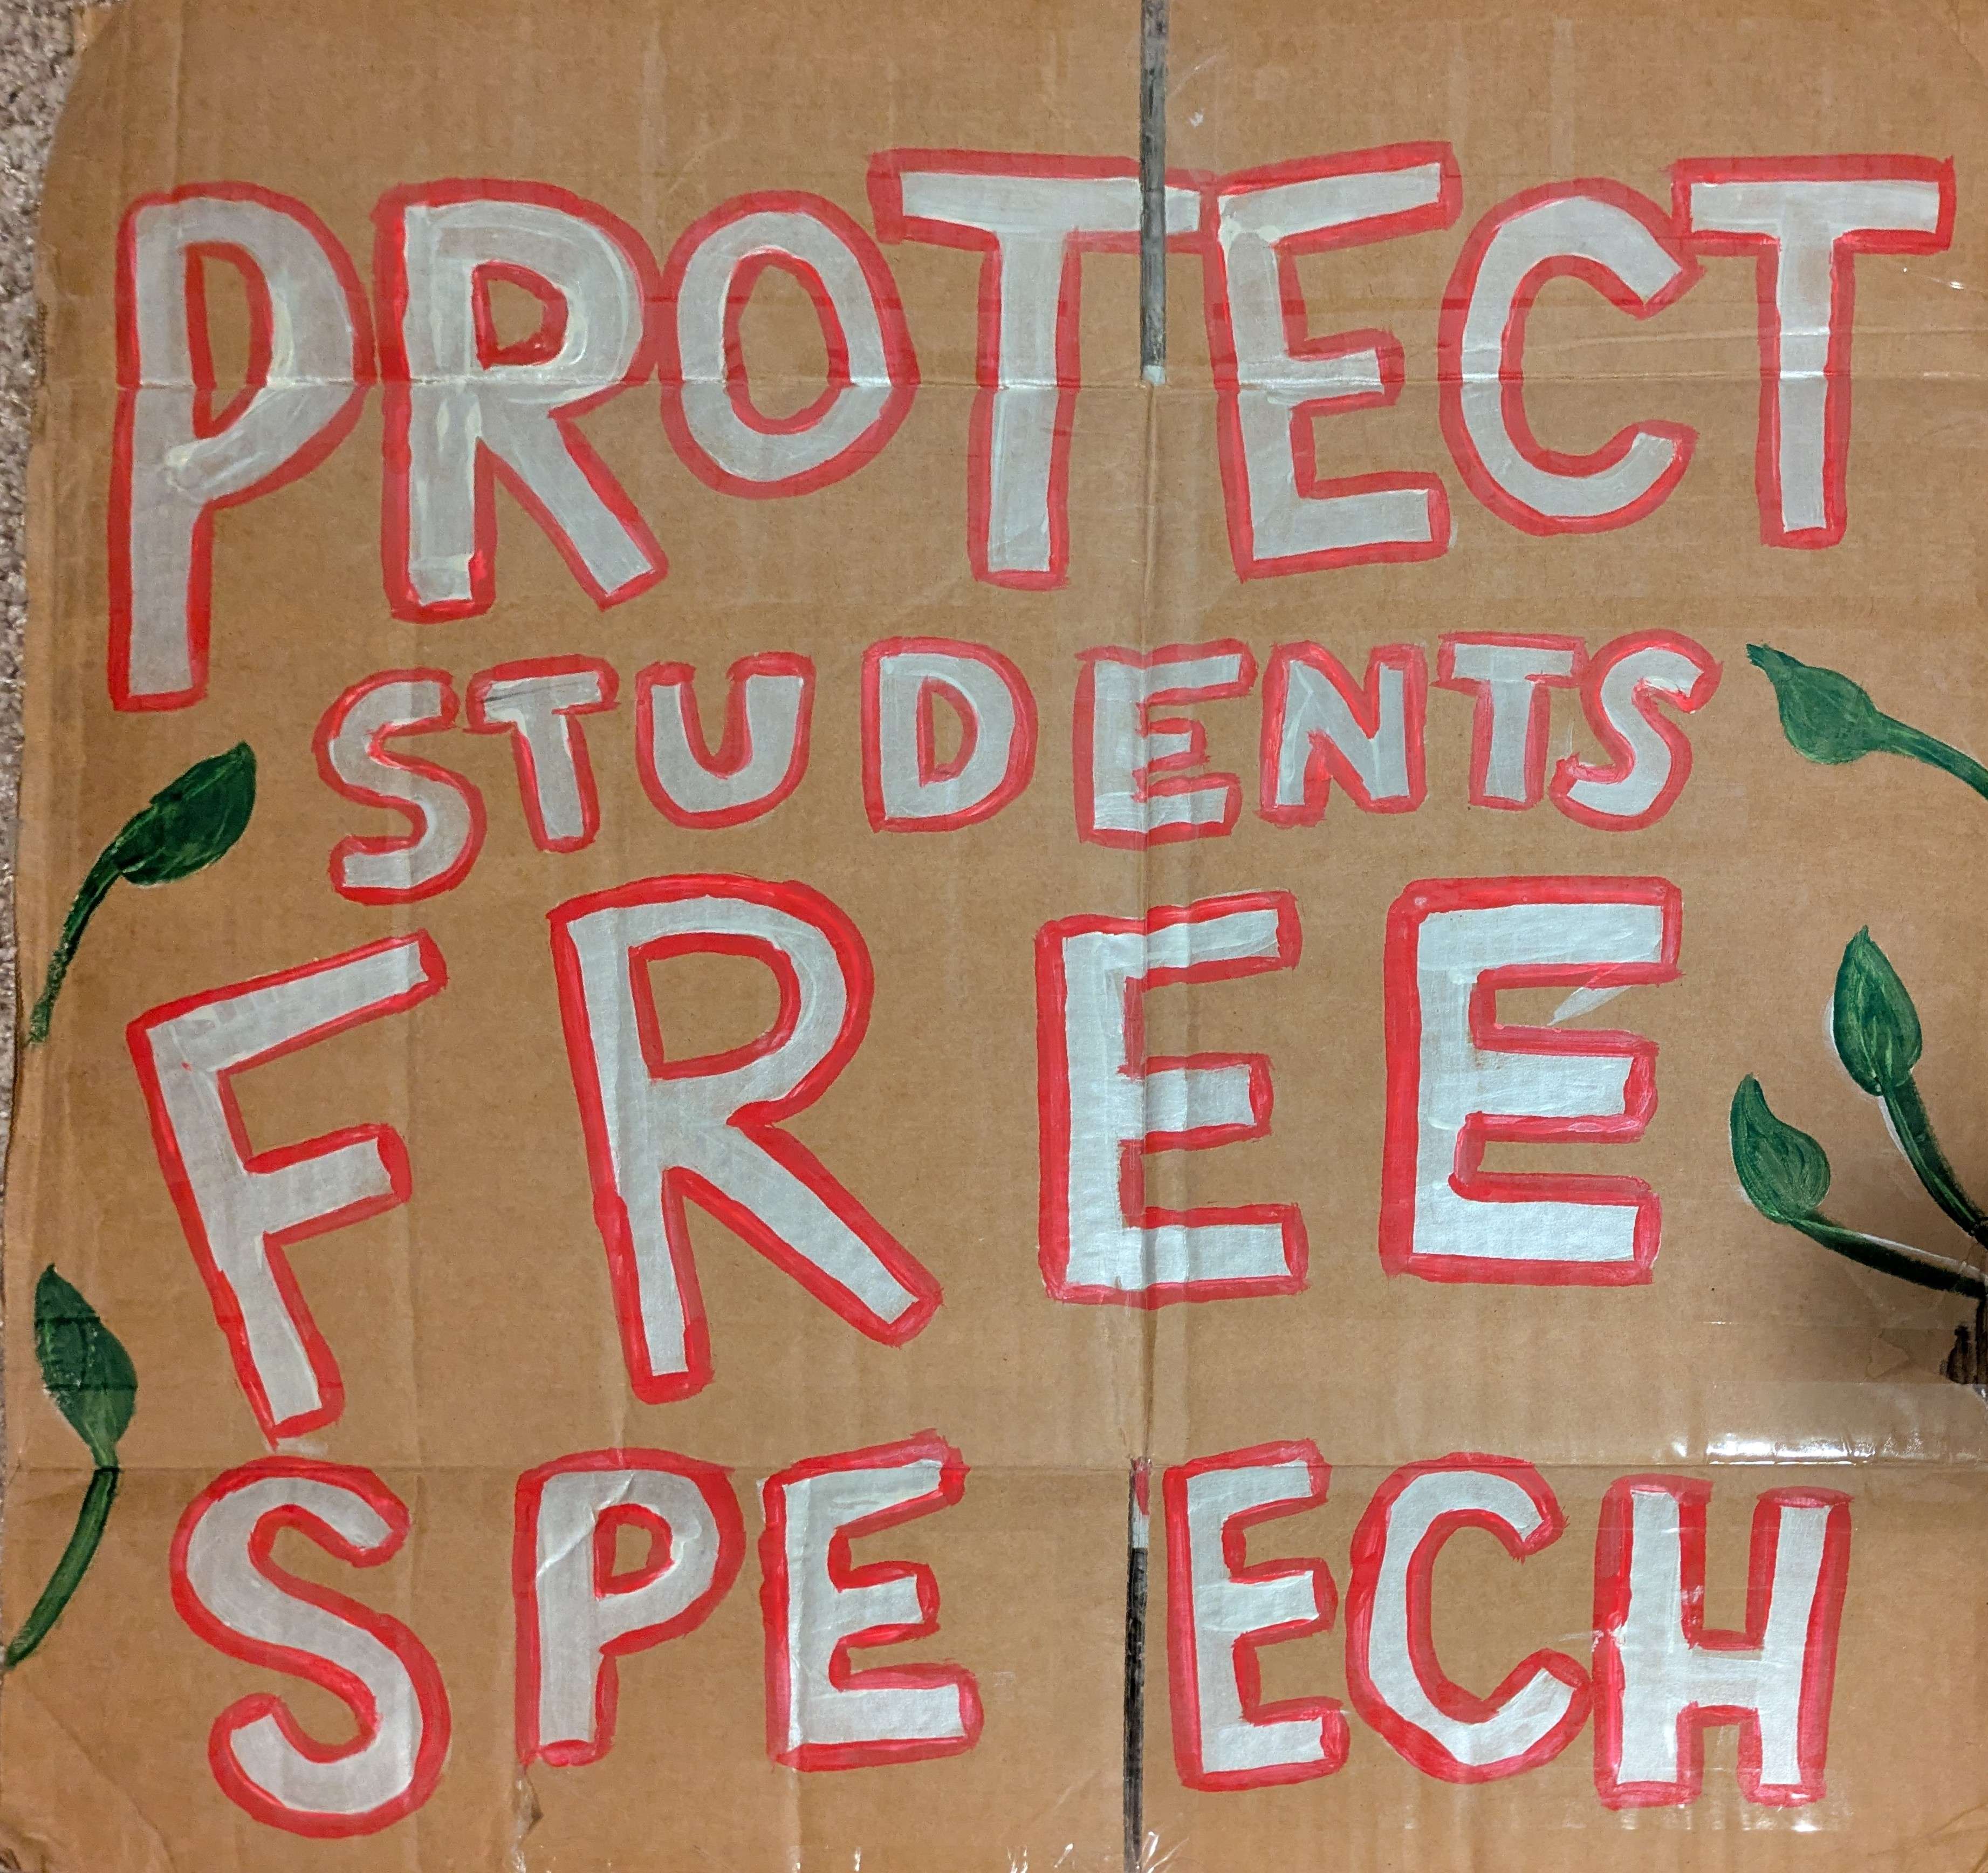 PROTECT
STUDENTS
FREE
SPEECH